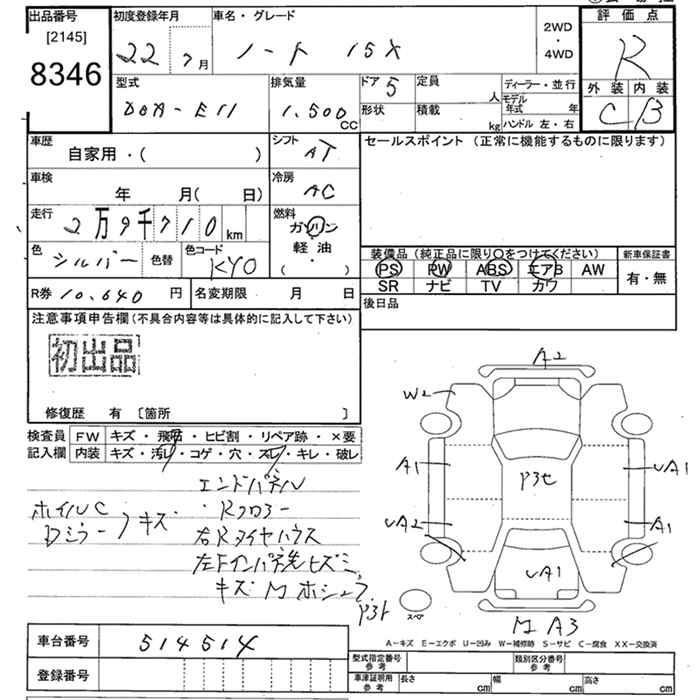 出品番号
[2145]
8346
初度登録年月
22 7月
車名・グレード
ノート 15X
2WD
・
4WD
評価点
R
外装 内装
C B
型式
DBA-E11
排気量
1,500 CC
ドア 5
定員 人
形状
積載 kg
ディーラー・並行
モデル年式 年
ハンドル 左・右
車歴
自家用・( )
シフト
AT
車検
年 月( 日)
冷房
AC
走行
2万9千710km
燃料
ガソリン
軽油
( ・ )
色
シルバー
色替
色コード
KY0
R券 10,640 円
名変期限 月 日
セールスポイント(正常に機能するものに限ります)
装備品(純正品に限り○をつけてください)
PS PW ABS エアB AW
SR ナビ TV カワ
新車保証書
有・無
後日品
注意事項申告欄(不具合内容等は具体的に記入して下さい)
初出品
修復歴 有 〔箇所 〕
検査員記入欄
FW キズ・飛石・ヒビ割・リペア跡・×要
内装 キズ・汚レ・コゲ・穴・スレ・キレ・破レ
エンドパネル
ホイルC
Dミラー
キズ
・Rフロアー
右Rタイヤハウス
左Fインパネ先ヒズミ
キズ M ホシュウ
A2
W2
A1
UA1
UA2
A1
UA1
スペア
M A3
A-キズ E-エクボ U-凹み W-補修跡 S-サビ C-腐食 XX-交換済
車台番号 514514
登録番号
型式指定番号
参考
類別区分番号
参考
車庫証明用
参考
長さ cm
幅 cm
高さ cm